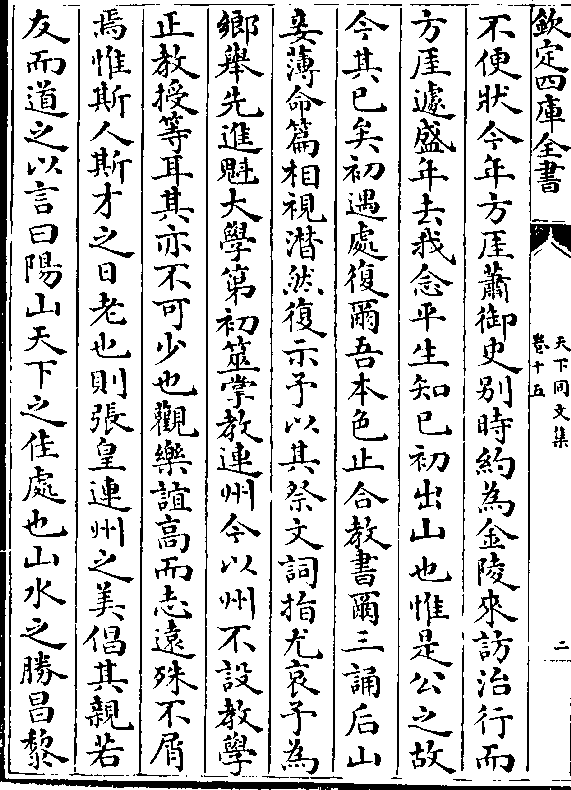 欽定四庫全書
天下同文集
卷十五
二
不便狀今年方厓蕭御史别時約為金陵來訪治行而
方厓遽盛年去我念平生知已初出山也惟是公之故
今其已矣初遇處復爾吾本色止合教書爾三誦后山
妾薄命篇相視潸然復示予以其祭文詞指尤哀予為
鄉舉先進魁大學第初筮掌教連州今以州不設教學
正教授等耳其亦不可少也觀樂誼高而志遠殊不屑
焉惟斯人斯才之日老也則張皇連州之美倡其親若
友而道之以言曰陽山天下之佳處也山水之勝昌黎